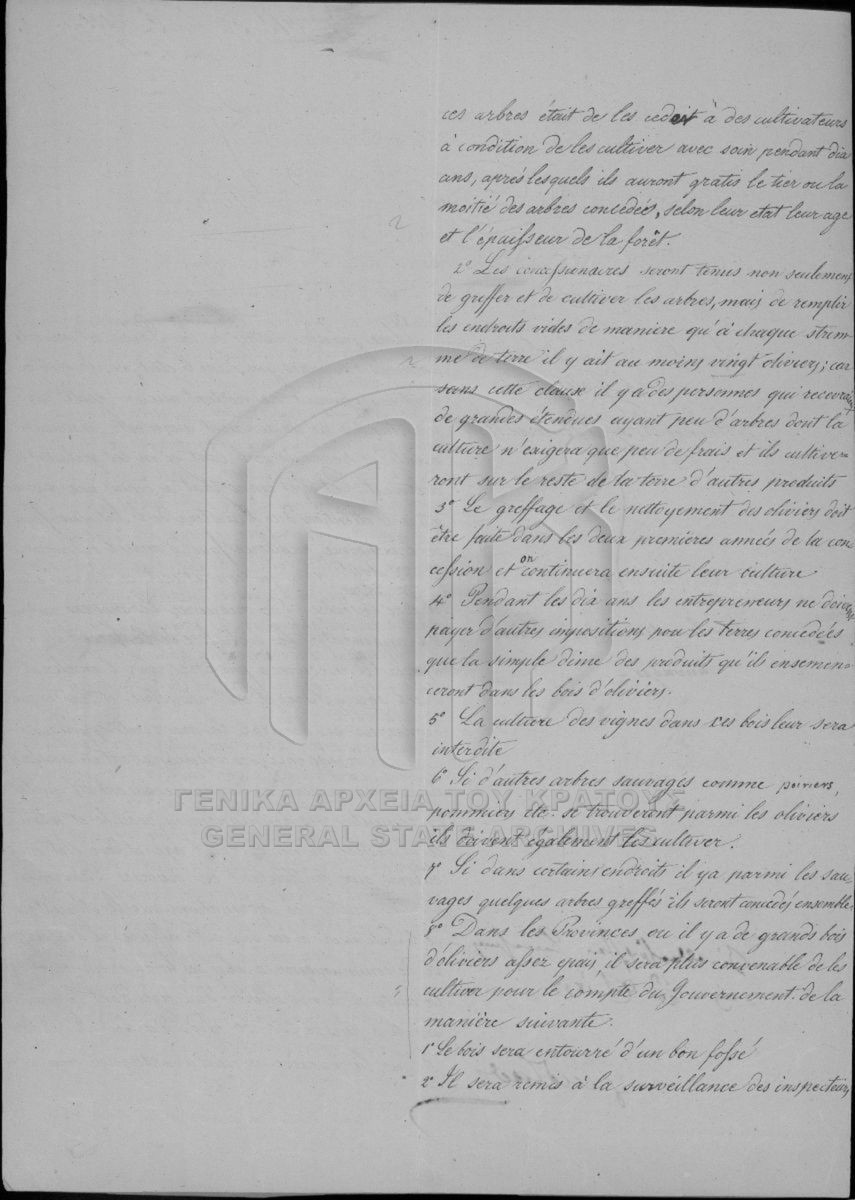 ces arbres était de les ceder à des cultivateurs
à condition de les cultiver avec soin pendant dix
ans, après lesquels ils auront gratis le tier ou la
moitié des arbres concedés, selon leur etat leur age
et l'épaisseur de la forêt.
2° Les concessionaires seront tenus non seulement
de greffer et de cultiver les arbres, mais de remplir
les endroits vides de maniere qu'à chaque strem-
me de terre il y ait au moins vingt oliviers; car
sans cette clause il y a des personnes qui recevraient
de grandes étendues ayant peu d'arbres dont la
culture n'exigera que peu de frais et ils cultive-
ront sur le reste de la terre d'autres produits
3° Le greffage et le nettoyement des oliviers doit
être faite dans les deux premieres années de la con
cession et on continuera ensuite leur culture
4° Pendant les dix ans les entrepreneurs ne doivent
payer d'autres impositions pou les terres concedées
que la simple dime des produits qu'ils ensemen-
ceront dans les bois d'oliviers.
5° La culture des vignes dans ces bois leur sera
interdite
6° Si d'autres arbres sauvages comme poiriers,
pommiers etc. se trouveront parmi les oliviers
ils doivent également les cultiver.
7° Si dans certains endroits il y a parmi les sau-
vages quelques arbres greffés ils seront concedés ensemble.
8° Dans les Provinces ou il y a de grands bois
d'oliviers assez epais, il sera plus convenable de les
cultiver pour le compte du Gouvernement de la
manière suivante.
1° Le bois sera entourré d'un bon fossé
2° Il sera remis à la surveillance des inspecteurs
ΓΕΝΙΚΑ ΑΡΧΕΙΑ ΤΟΥ ΚΡΑΤΟΥΣ
GENERAL STATE ARCHIVES